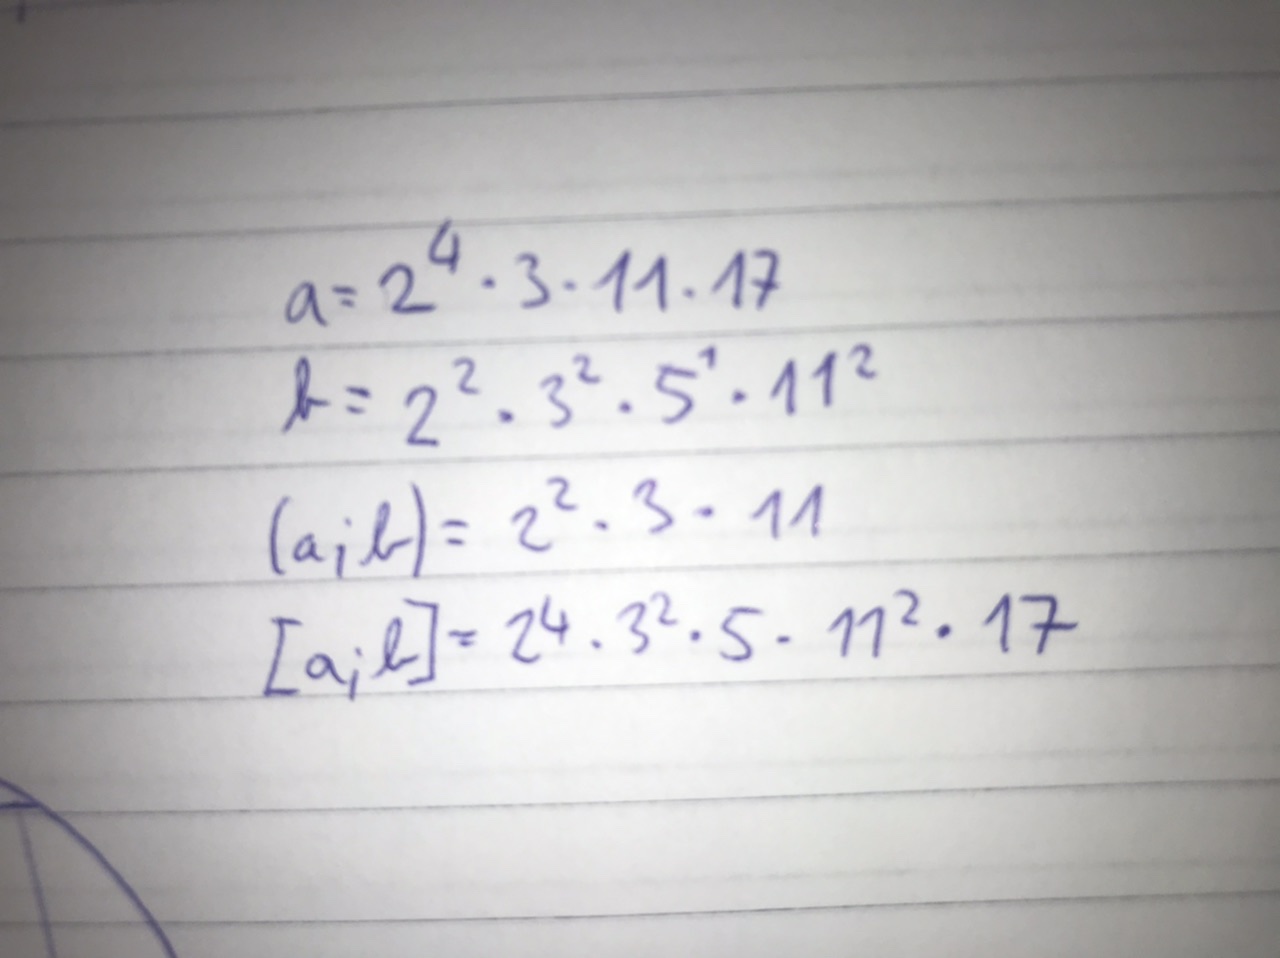 a = 2⁴ · 3 · 11 · 17
b = 2² · 3² · 5¹ · 11²
(a;b) = 2² · 3 · 11
[a;b] = 2⁴ · 3² · 5 · 11² · 17